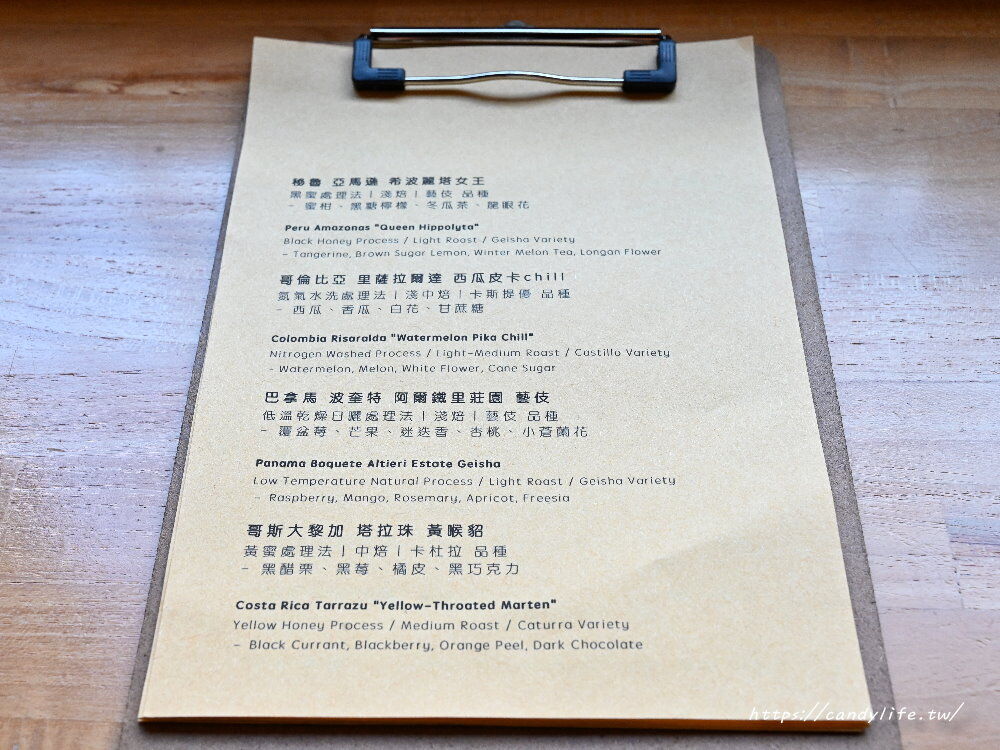 秘魯 亞馬遜 希波麗塔女王
黑蜜處理法 | 淺焙 | 藝伎 品種
- 蜜柑、黑糖檸檬、冬瓜茶、龍眼花
Peru Amazonas "Queen Hippolyta"
Black Honey Process / Light Roast / Geisha Variety
- Tangerine, Brown Sugar Lemon, Winter Melon Tea, Longan Flower
哥倫比亞 里薩拉爾達 西瓜皮卡chill
氮氣水洗處理法 | 淺中焙 | 卡斯提優 品種
- 西瓜、香瓜、白花、甘蔗糖
Colombia Risaralda "Watermelon Pika Chill"
Nitrogen Washed Process / Light-Medium Roast / Castillo Variety
- Watermelon, Melon, White Flower, Cane Sugar
巴拿馬 波奎特 阿爾鐵里莊園 藝伎
低溫乾燥日曬處理法 | 淺焙 | 藝伎 品種
- 覆盆莓、芒果、迷迭香、杏桃、小蒼蘭花
Panama Boquete Altieri Estate Geisha
Low Temperature Natural Process / Light Roast / Geisha Variety
- Raspberry, Mango, Rosemary, Apricot, Freesia
哥斯大黎加 塔拉珠 黃喉貂
黃蜜處理法 | 中焙 | 卡杜拉 品種
- 黑醋栗、黑莓、橘皮、黑巧克力
Costa Rica Tarrazu "Yellow-Throated Marten"
Yellow Honey Process / Medium Roast / Caturra Variety
- Black Currant, Blackberry, Orange Peel, Dark Chocolate
https://candylife.tw/